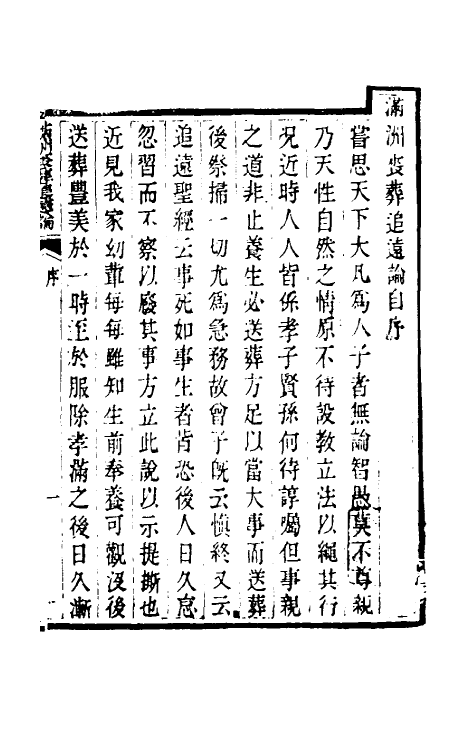 滿洲喪葬追遠論自序
嘗思天下大凡爲人子者無論智愚莫不尊親
乃天性自然之情原不待設教立法以繩其行
況近時人人皆係孝子賢孫何待諄囑但事親
之道非止養生必送葬方足以當大事而送葬
後祭掃一切尤爲急務故曾子旣云慎終又云
追遠聖經云事死如事生者皆恐後人日久怠
忽習而不察以廢其事方立此說以示提撕也
近見我家幼輩每每雖知生前奉養可觀沒後
送葬豐美於一時至於服除孝滿之後日久漸
滿洲喪葬追遠論
序
一